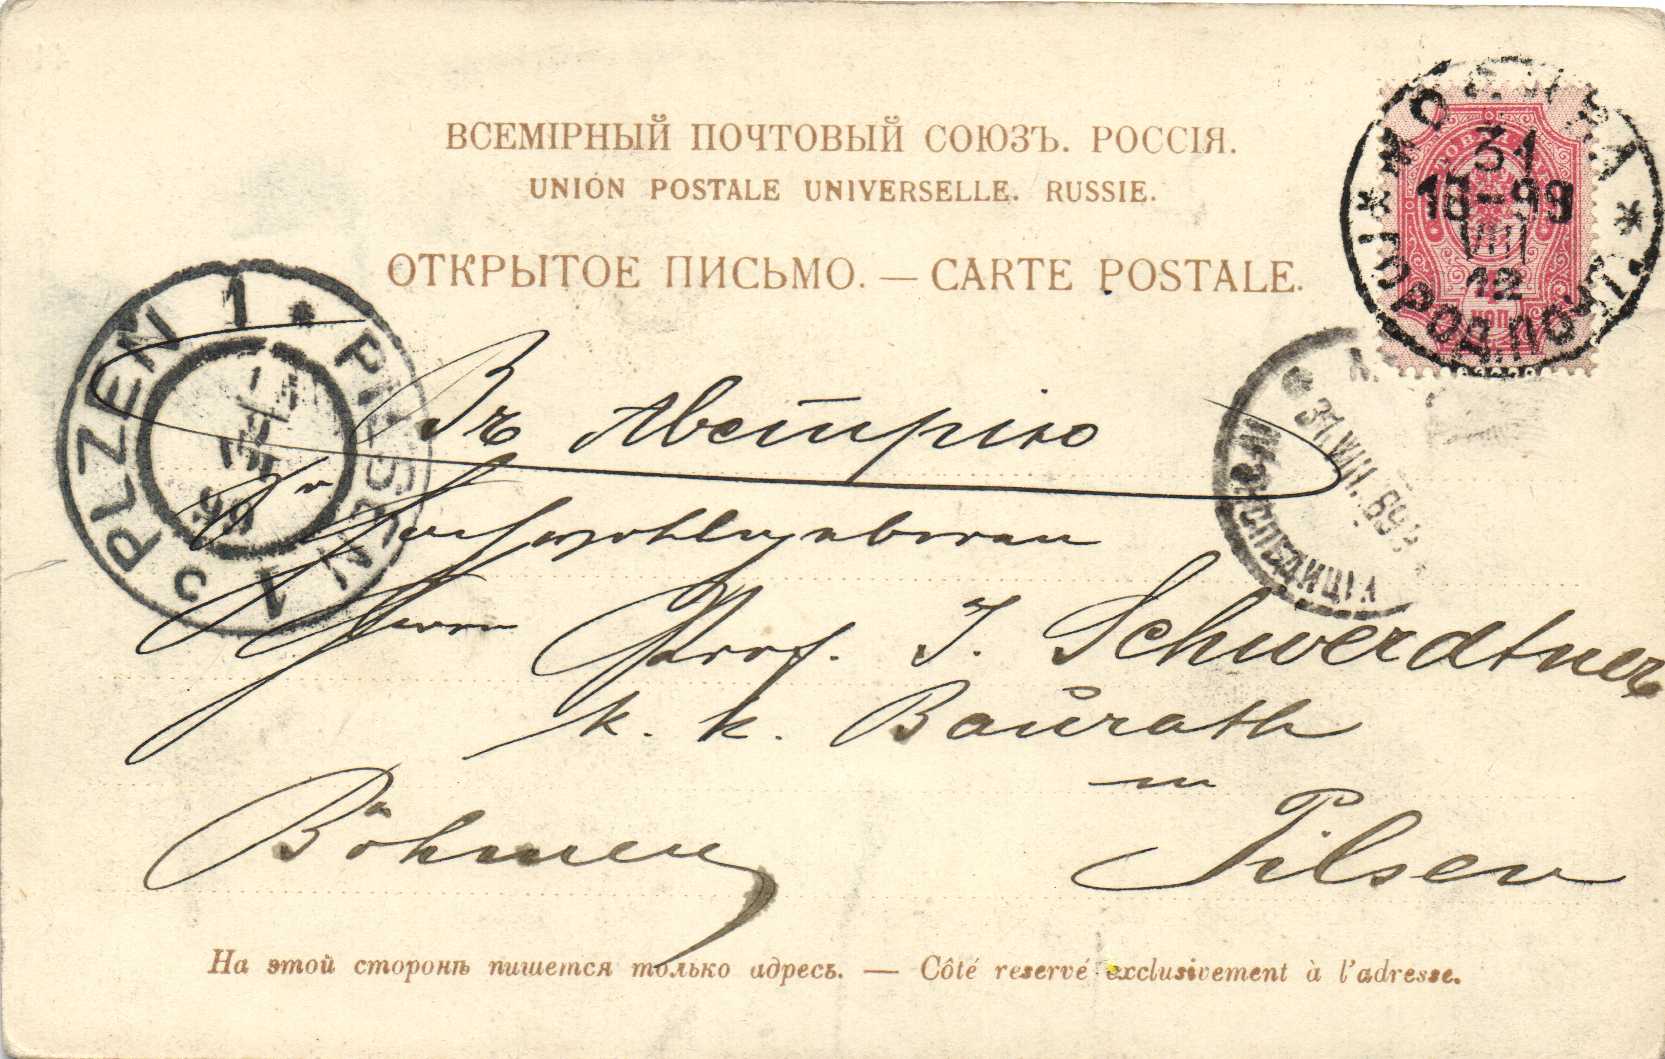 ВСЕМІРНЫЙ ПОЧТОВЫЙ СОЮЗЪ. РОССІЯ.
UNION POSTALE UNIVERSELLE. RUSSIE.
ОТКРЫТОЕ ПИСЬМО. — CARTE POSTALE.
МОСКВА
31
18-99
VIII
12
ГОРОД. ПОЧТ.
КОП.
PLZEŇ 1 * PILSEN 1
99
31.VIII.
ЭКСПЕДИЦІЯ
Въ Австрію
Sr Hochwohlgeboren
Herrn Prof. J. Schwerdtner
k. k. Baurath
in
Böhmen Pilsen
На этой сторонѣ пишется только адресъ. — Côté reservé exclusivement à l'adresse.